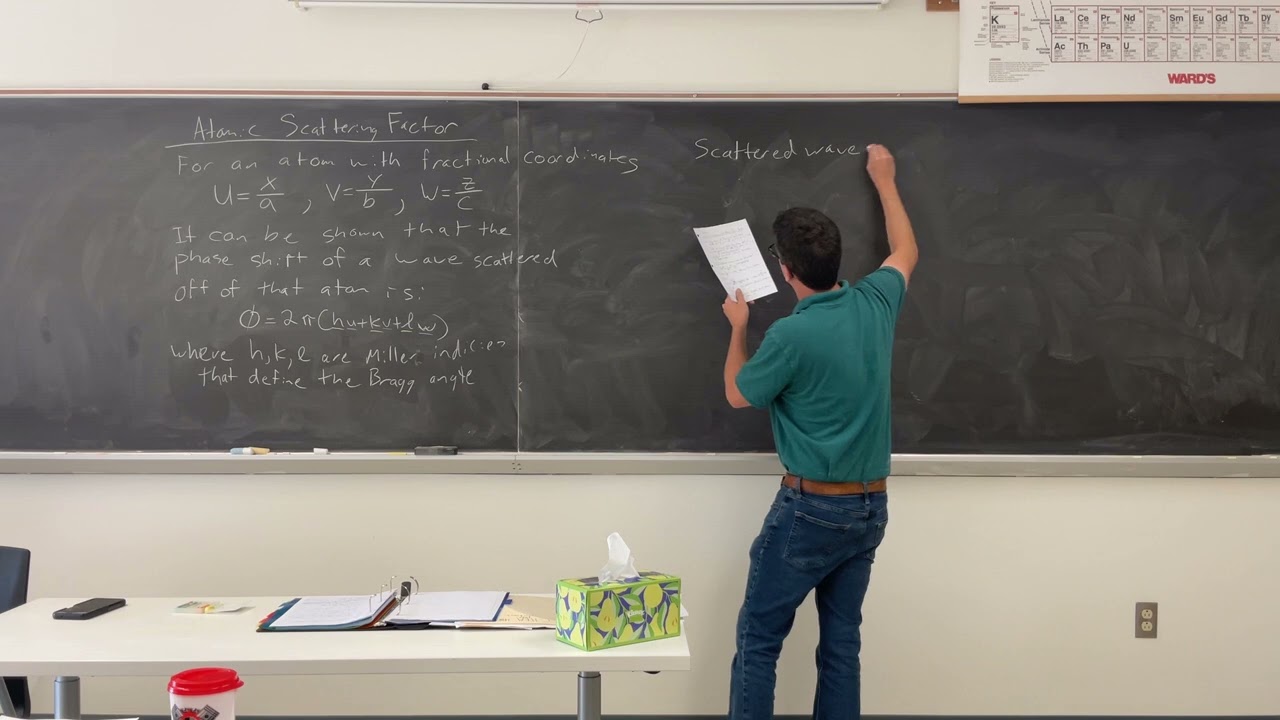 Atomic Scattering Factor
For an atom with fractional coordinates
U = x/a , V = y/b , W = z/c
It can be shown that the
phase shift of a wave scattered
off of that atom is:
ϕ = 2π(hu+kv+lw)
where h,k,l are Miller indicies
that define the Bragg angle
Scattered wave
K
La Ce Pr Nd Sm Eu Gd Tb Dy
Ac Th Pa U
WARD'S